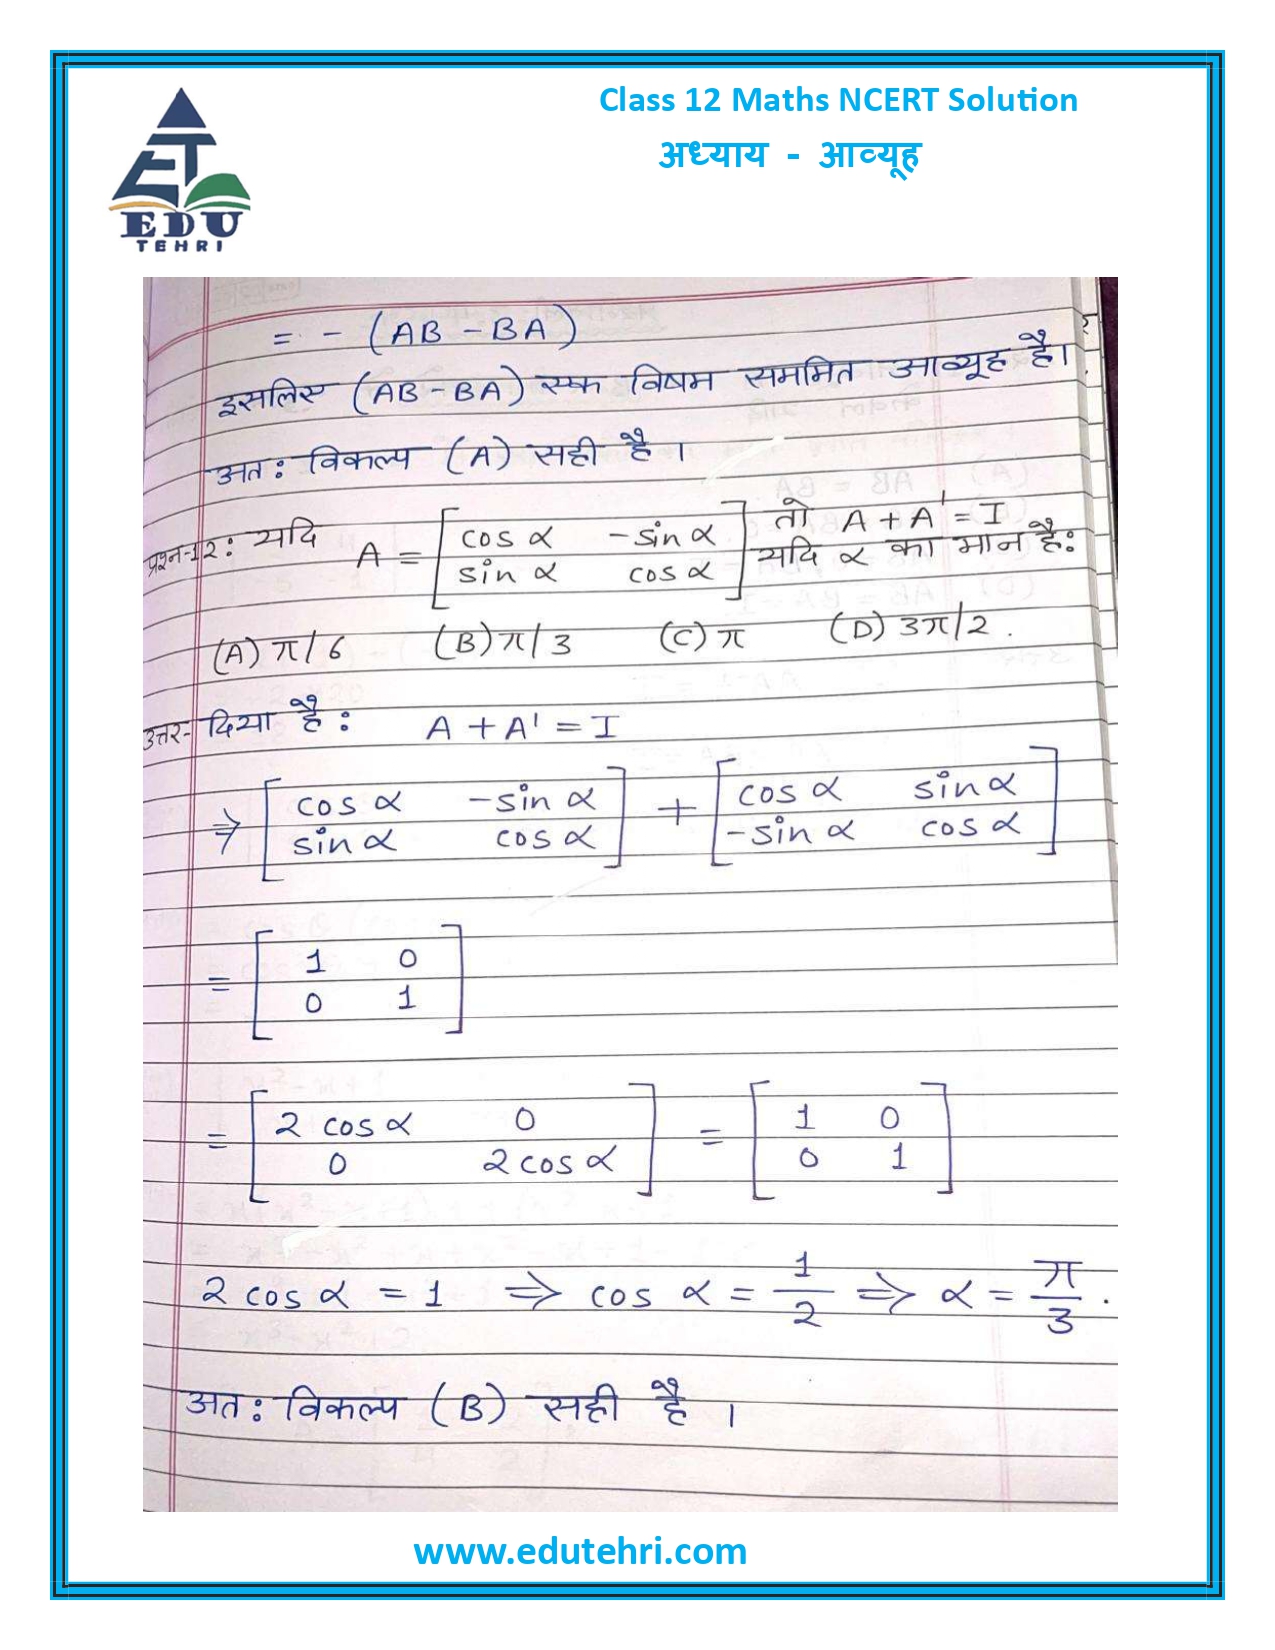 Class 12 Maths NCERT Solution
अध्याय - आव्यूह
EDU
TEHRI
= - (AB - BA)
इसलिए (AB - BA) एक विषम सममित आव्यूह है।
अतः विकल्प (A) सही है।
प्रश्न-12: यदि A = [cos α -sin α तो A + A' = I
sin α cos α] यदि α का मान है:
(A) π/6 (B) π/3 (C) π (D) 3π/2.
उत्तर- दिया है: A + A' = I
⇒ [cos α -sin α] + [cos α sin α]
[sin α cos α] [-sin α cos α]
= [1 0]
[0 1]
= [2 cos α 0] = [1 0]
[0 2 cos α] [0 1]
2 cos α = 1 ⇒ cos α = 1/2 ⇒ α = π/3.
अतः विकल्प (B) सही है।
www.edutehri.com